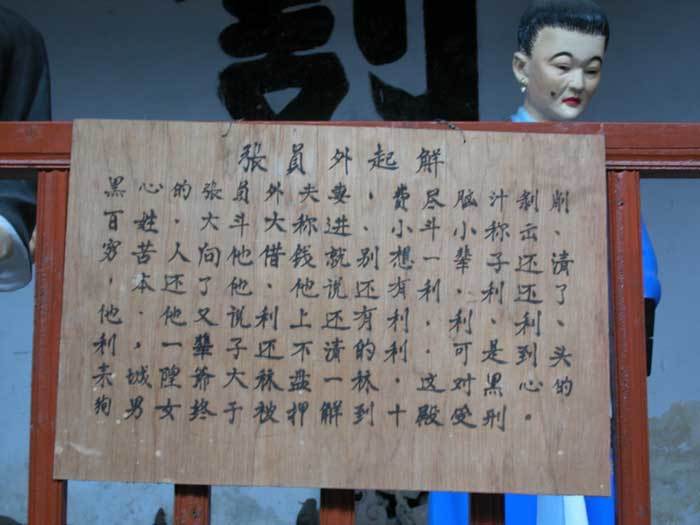 張員外起解
黑心的張員外夫妻，費尽脑汁刮削
百姓．大斗大称進、小斗小称出、
穷苦人向他借钱就别想一輩子还清
，本还了他，他說还有利，利还了、
他．他又說利上还有利．利、还利到
利．一輩子还不清的利．可是到头
来城隍爷大祘盘一祘，这对黑心的
狗男女终于被押解到十殿受刑。